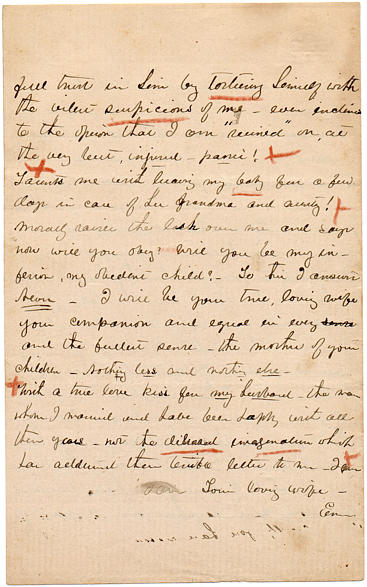 full trust in him by torturing himself with
the vilest suspicions of me - even inclines
to the opinion that I am "ruined" or, at
the very best, injured - passé!
Taunts me with leaving my baby for a few
days in care of her Grandma and aunty!
Morally raises the lash over me and says
now will you obey? Will you be my in-
ferior, my obedient child? - To this I answer
Never - I will be your true, loving wife
your companion and equal in every sense
and the fullest sense - the mother of your
children - nothing less and nothing else -
With a true love kiss for my husband - the man
whom I married and have been happy with all
these years - not the diseased imagination which
has addressed these terrible letter to me - I am
Your loving wife -